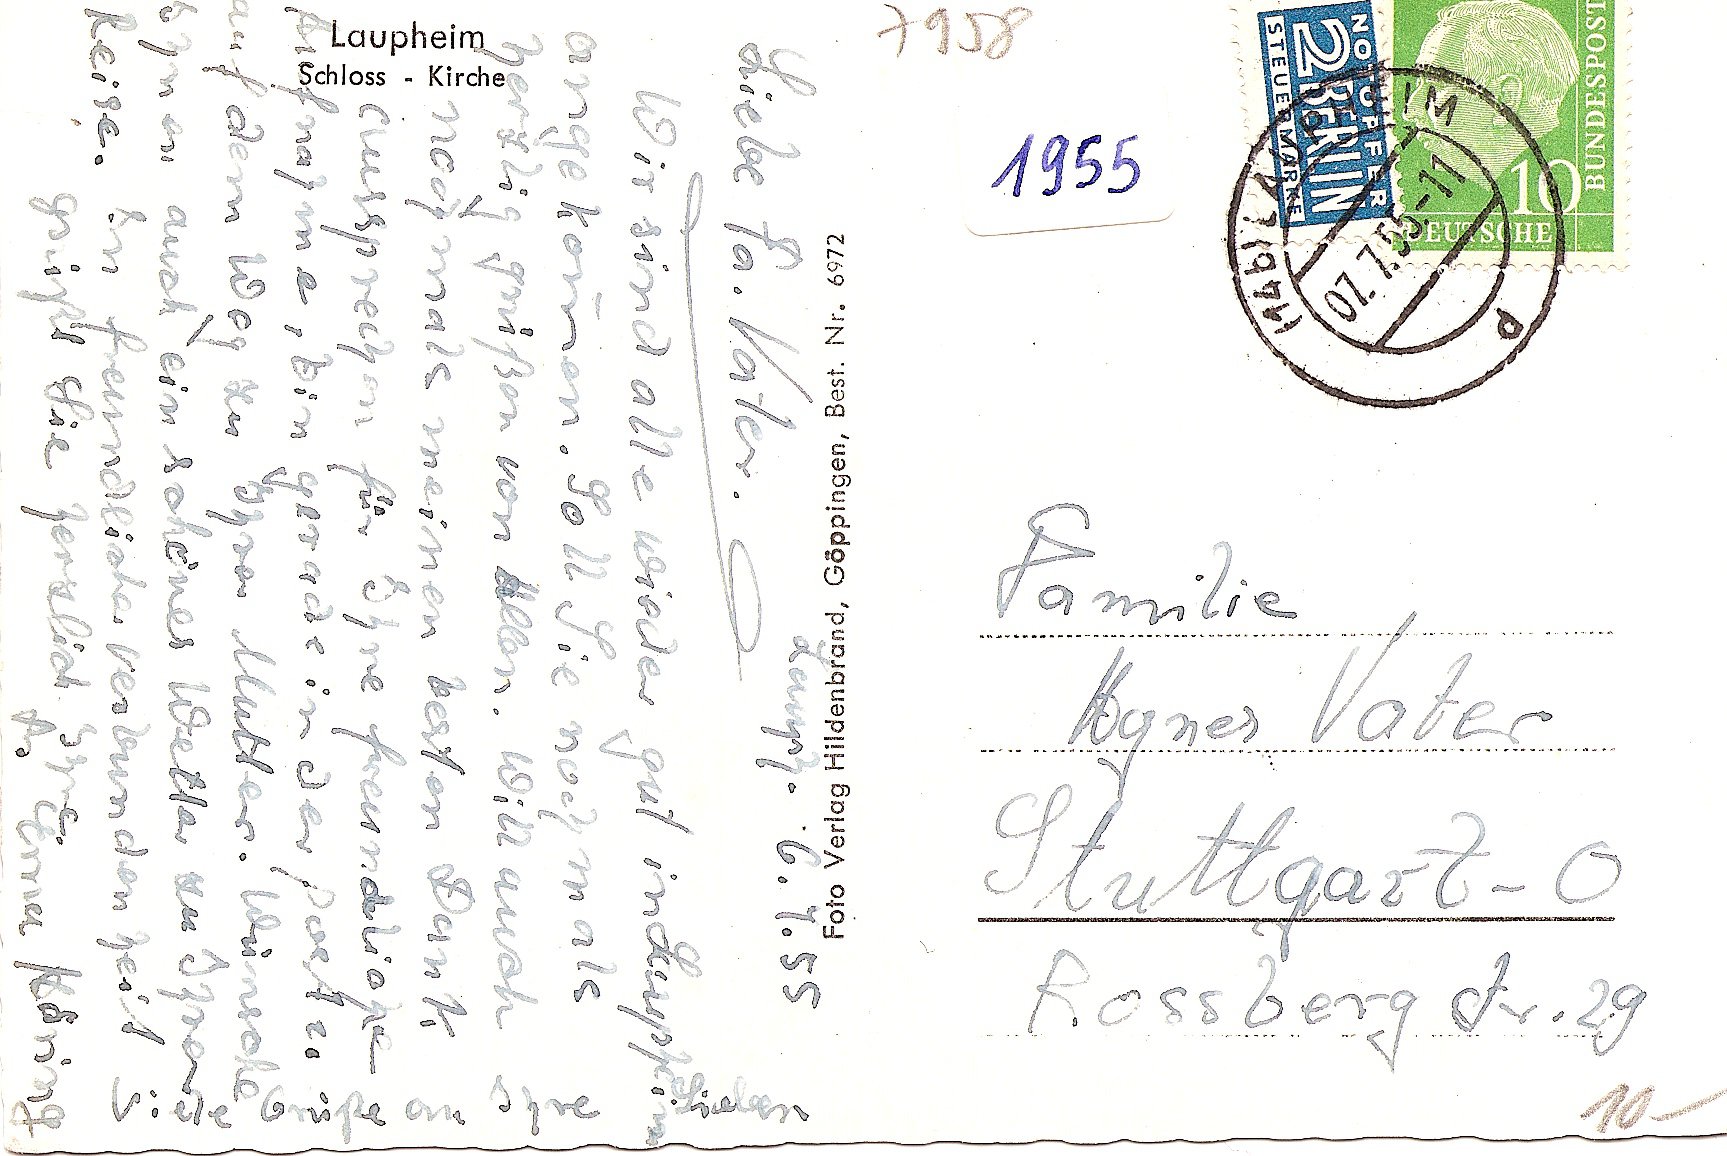 Laupheim
Schloss - Kirche
7958
1955
NOTOPFER
2 BERLIN
STEUERMARKE
DEUTSCHE
BUNDESPOST
10
(14b) LAUPHEIM
07.7.55-11
d
Lauph. 6.7.55
Liebe Fa. Vater.
Wir sind alle wieder gut in Laupheim
angekommen. Soll Sie nochmals
herzlich grüßen von Allen. Will auch
nochmals meinen besten Dank
aussprechen für Ihre freundliche
Aufnahme, bin gerade in der
auf dem Weg zu Ihrer Mutter. Wünsche
Ihnen auch ein schönes Wetter zu Ihrer
Reise. In freundlicher Verbundenheit
grüßt Sie herzlich Ihre
Fr. Erna König
Viele Grüße an Ihre Lieben
Foto Verlag Hildenbrand, Göppingen, Best. Nr. 6972
Familie
Agnes Vater
Stuttgart-O
Rossbergstr. 29
10-